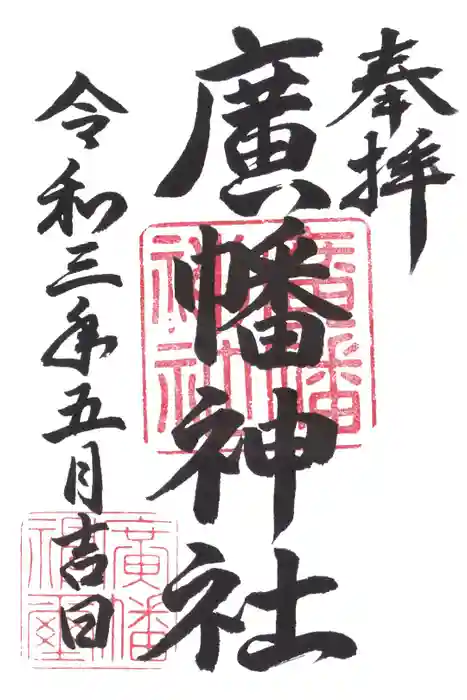 奉拝
廣幡神社
令和三年五月吉日
廣幡
神社